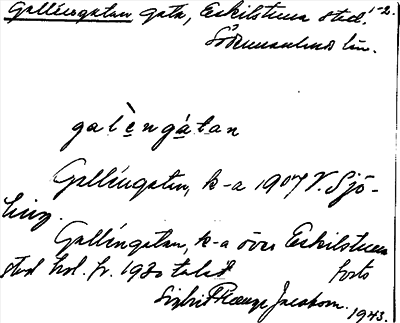 Galléngatan gata, Eskilstuna stad, 1-2.
Södermanlands län.
galèngátan
Galléngatan, k-a 1907 V. Sjö-
ling.
Galléngatan, k-a över Eskilstuna
stad kol. fr. 1930 talet forts
Sigbrit Plænge Jacobson. 1943.